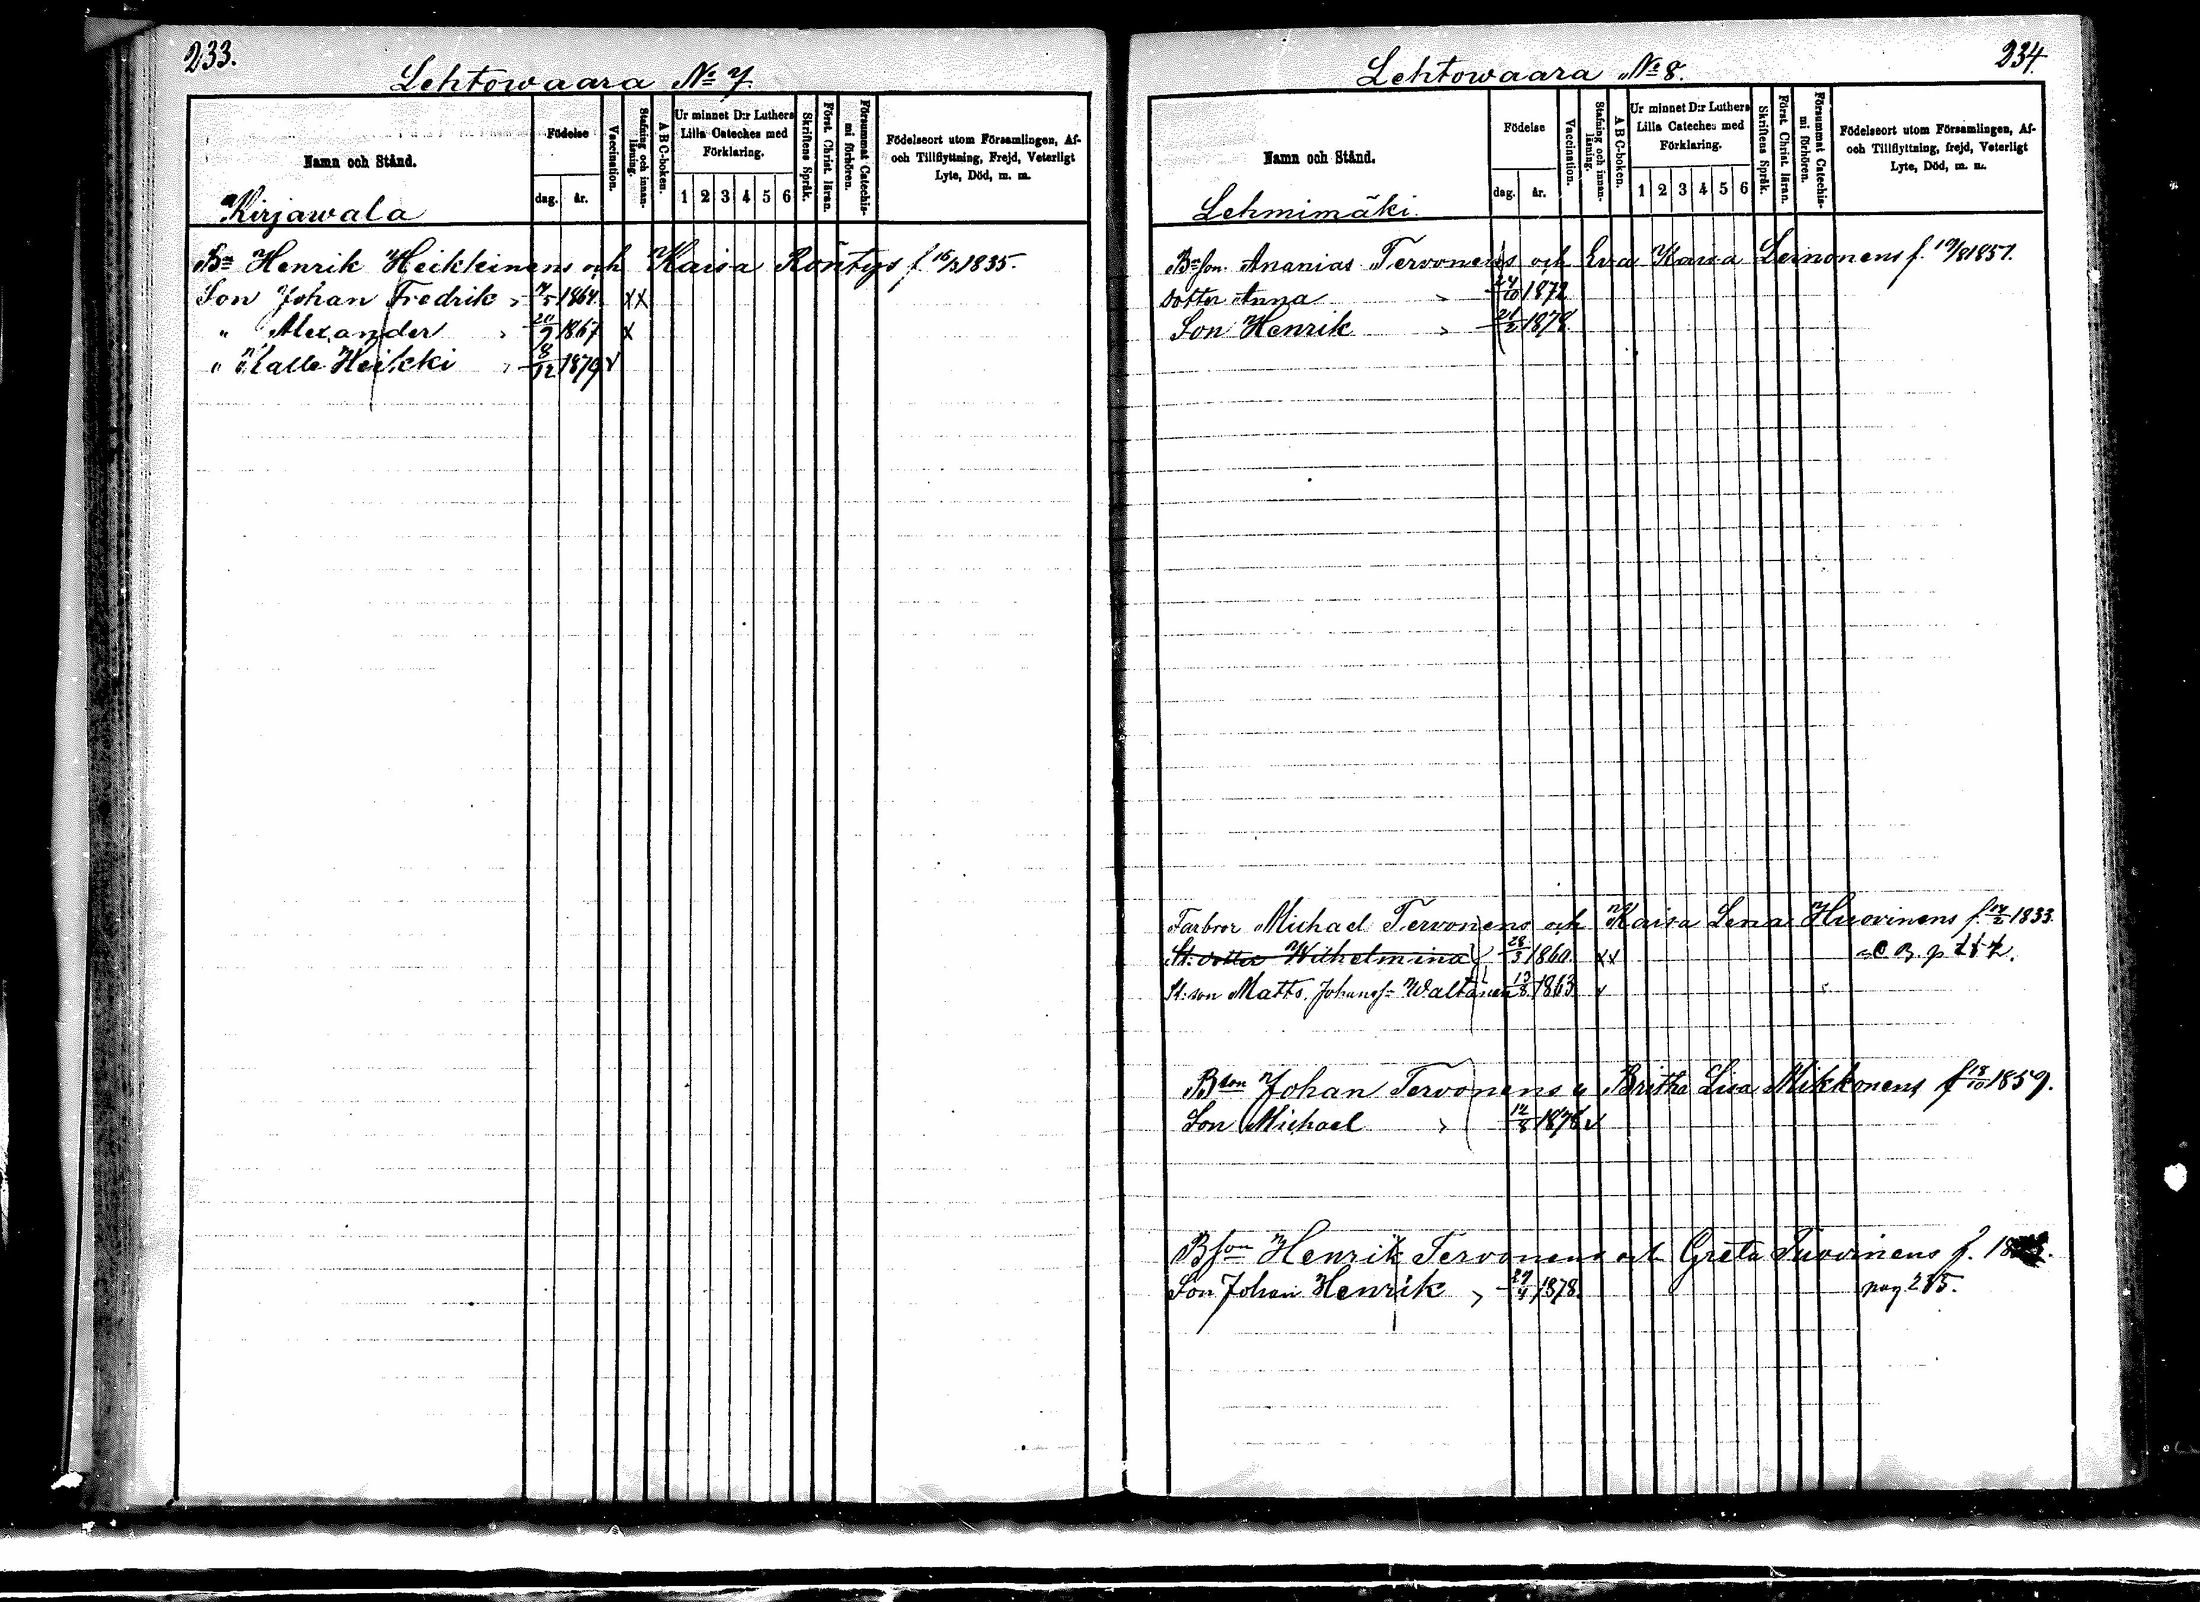 233.
Lehtowaara No 7.
Namn och Stånd.
Födelse
dag. år.
Vaccination.
Stafning och innanläsning.
A B C-boken.
Ur minnet D:r Luthers Lilla Cateches med Förklaring.
1 2 3 4 5 6
Skriftens Språk.
Först. Christ. läran.
Försummat Catechismi förhören.
Födelseort utom Församlingen, Af- och Tillflyttning, Frejd, Veterligt Lyte, Död, m. m.
Kirjawala
Bn Henrik Heikkinens och Kaisa Röntys f 16/3 1835.
Son Johan Fredrik " 7/5 1864. xx
" Alexander " 20/9 1867 x
" Kalle Heikki " 8/12 1879 v
234.
Lehtowaara No 8.
Namn och Stånd.
Födelse
dag. år.
Vaccination.
Stafning och innanläsning.
A B C-boken.
Ur minnet D:r Luthers Lilla Cateches med Förklaring.
1 2 3 4 5 6
Skriftens Språk.
Först. Christ. läran.
Försummat Catechismi förhören.
Födelseort utom Församlingen, Af- och Tillflyttning, frejd, Veterligt Lyte, Död, m. m.
Lehmimäki.
Bn son Ananias Tervonens och Eva Kaisa Leinonens f. 1851.
dotter Anna " 1872
Son Henrik " 1878
Farbror Michael Tervonens och Kaisa Lena Huovinens f. 1833.
St: dotter Wilhelmina 28/3 1860. xx
St: son Matts Johanss: Waltanen 13/8 1863
Bson Johan Tervonens o Britha Lisa Mikkonens f 18/10 1859.
Son Michael " 12/8 1878 v
Bson Henrik Tervonens och Greta Tuovinens f.
Son Johan Henrik " 1878. pag 235.